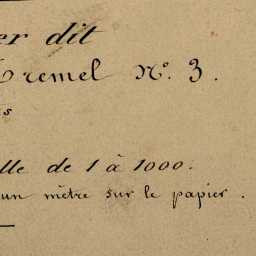 er dit
Tremel N°. 3.
s
lle de 1 à 1000.
un mètre sur le papier.